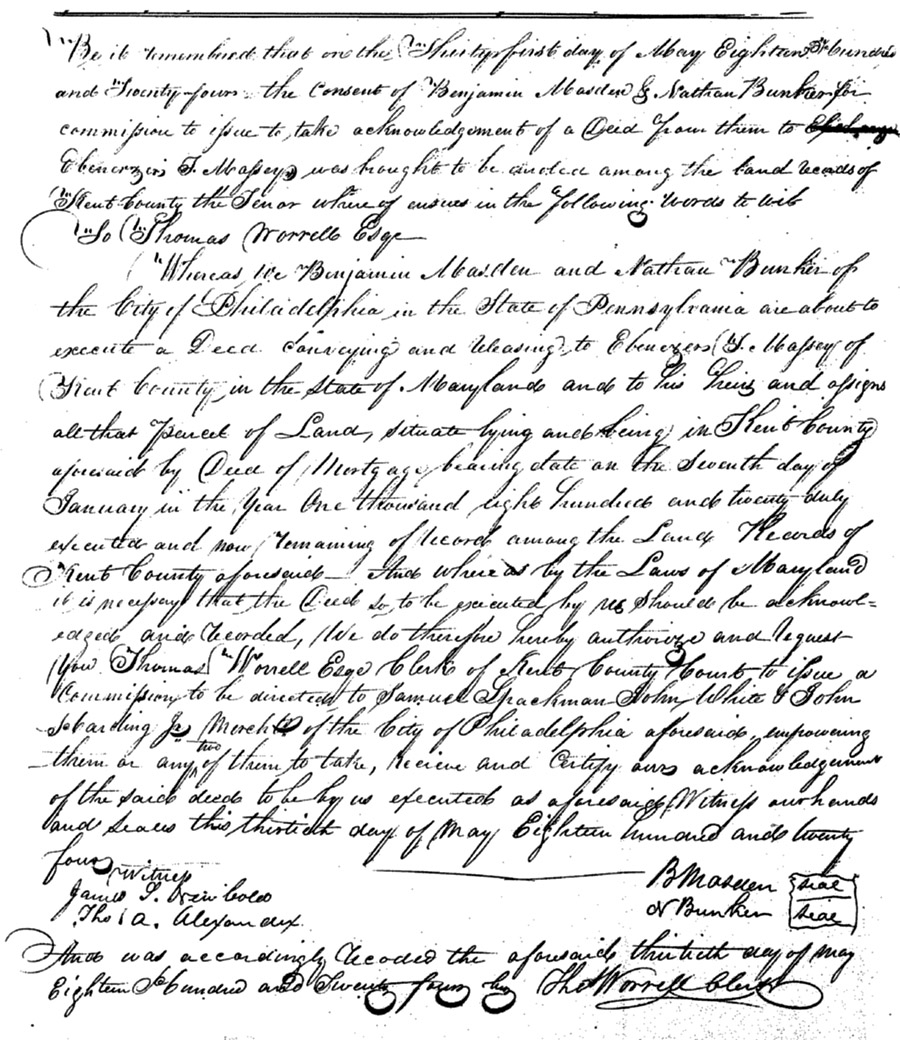 Be it remembered that on the Thirty first day of May Eighteen Hundred
and Twenty four the Consent of Benjamin Masden & Nathan Bunker for
commission to issue to take acknowledgement of a Deed from them to
Ebenezer T. Massey was brought to be enroled among the land records of
Kent County the Tenor where of ensues in the following words to wit
To Thomas Worrell Esqe
Whereas We Benjamin Masden and Nathan Bunker of
the City of Philadelphia in the State of Pennsylvania are about to
execute a Deed Conveying and releasing to Ebenezer T. Massey of
Kent County in the State of Maryland and to his Heirs and assigns
all that Parcel of Land, situate lying and being in Kent County
aforesaid by Deed of Mortgage bearing date on the Seventh day of
January in the Year One thousand eight hundred and twenty duly
executed and now remaining of record among the Land Records of
Kent County aforesaid — And where as by the Laws of Maryland
it is necessary that the Deed so to be executed by us should be acknowl=
edged and recorded, We do therefore hereby authorize and request
You Thomas Worrell Esqe Clerk of Kent County Court to issue a
Commission to be directed to Samuel Spackman John White & John
Harding Jr Merchts of the City of Philadelphia aforesaid, empowering
them or any two of them to take, receive and Certify our acknowledgement
of the said deed to be by us executed as aforesaid, Witness our hands
and seals this thirtieth day of May Eighteen hundred and twenty
four
Witness
James S. Newbold
Thos A. Alexander
B Masden seal
N Bunker seal
And was accordingly recoded the aforesaid thirtieth day of may
Eighteen Hundred and Twenty four by Tho Worrell Clerk